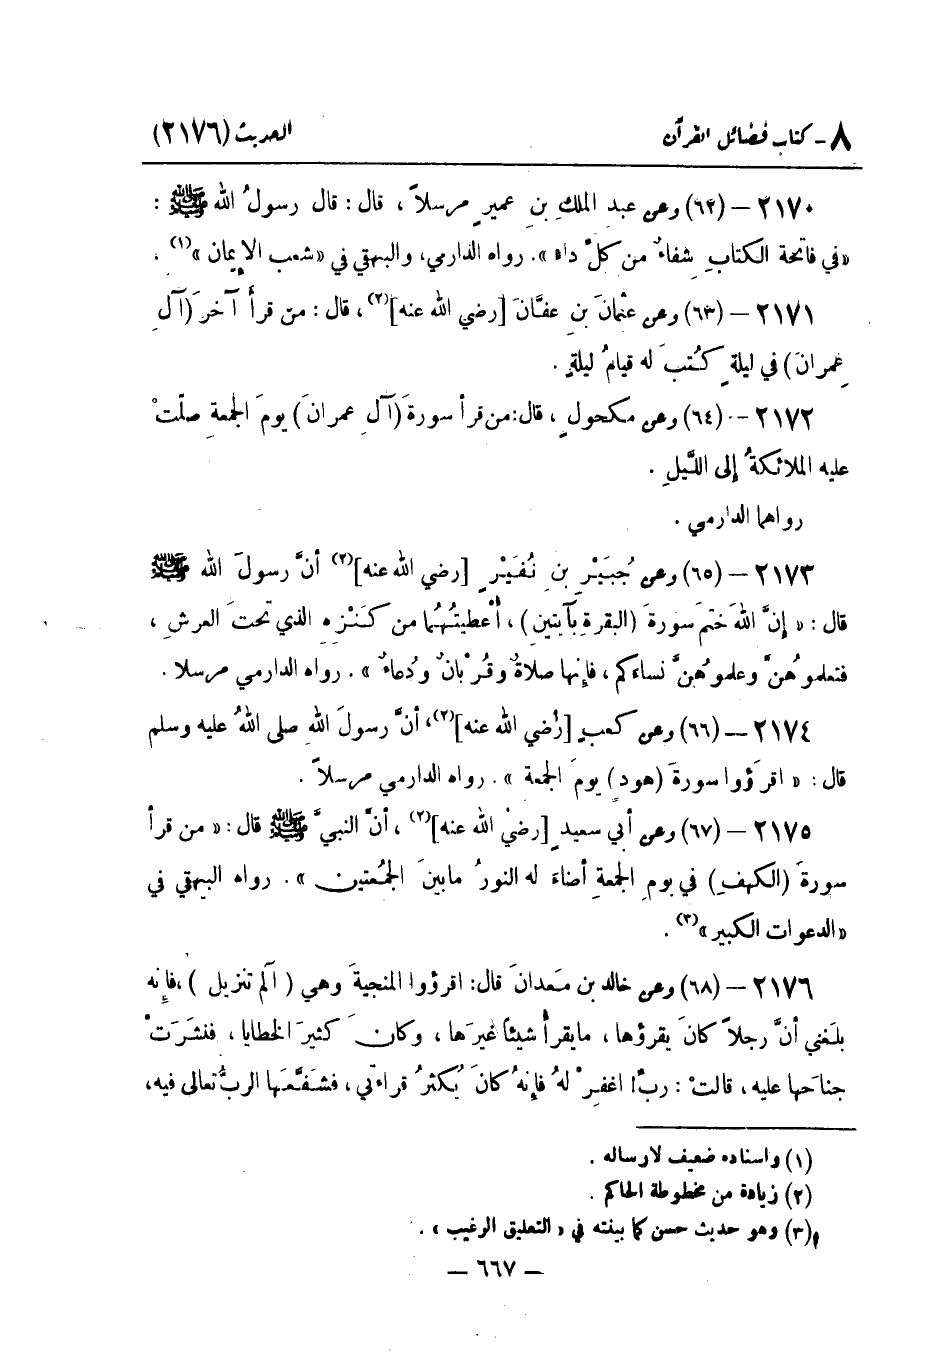 ٨ - كتاب فضائل القرآن الحديث (٢١٧٦)
٢١٧٠ - (٦٢) وعن عبدِ الملكِ بنِ عميرٍ مرسلاً ، قال : قال رسولُ الله ﷺ :
«في فاتحة الكتابِ شفاءٌ من كلّ داء» . رواه الدارمي، والبيهقي في «شعب الإيمان»(١) .
٢١٧١ - (٦٣) وعن عثمانَ بنِ عفَّانَ [رضي الله عنه](٢) ، قال : من قرأَ آخرَ (آلِ
عِمرانَ) في ليلةٍ كُتبَ له قيامُ ليلةٍ .
٢١٧٢ - (٦٤) وعن مكحولٍ ، قال: من قرأ سورةَ (آلِ عمرانَ) يومَ الجمعةِ صلّتْ
عليه الملائكةُ إلى اللَّيلِ .
رواهما الدارمي .
٢١٧٣ - (٦٥) وعن جُبَيْرِ بنِ نُفَيْرٍ [رضي الله عنه](٢) أنَّ رسولَ الله ﷺ
قال : « إنَّ اللهَ ختمَ سورةَ (البقرةِ بآيتينِ) ، أُعطيتُهُما من كَنْزِهِ الذي تحتَ العرشِ ،
فتعلموهُنَّ وعلموهُنَّ نساءَكم ، فإنها صلاةٌ وقُرْبانٌ ودُعاءٌ » . رواه الدارمي مرسلا .
٢١٧٤ - (٦٦) وعن كعبٍ [رضي الله عنه](٢)، أنَّ رسولَ اللهِ صلى اللهُ عليه وسلم
قال : « اقرَؤوا سورةَ (هود) يومَ الجمعة » . رواه الدارمي مرسلاً .
٢١٧٥ - (٦٧) وعن أبي سعيدٍ [رضيَ الله عنه](٢) ، أنَّ النبيَّ ﷺ قال : « من قرأَ
سورةَ (الكهفِ) في يومِ الجمعةِ أضاءَ له النورُ ما بينَ الجمُعتين » . رواه البيهقي في
«الدعوات الكبير»(٣) .
٢١٧٦ - (٦٨) وعن خالد بن مَعدانَ قال: اقرؤوا المنجيةَ وهي ( آلم تنزيل ) ، فإنه
بلغني أنَّ رجلاً كانَ يقرؤها ، ما يقرأُ شيئاً غيرَها ، وكان كثيرَ الخطايا ، فنشَرَتْ
جناحها عليه ، قالتْ : ربِّ! اغفِرْ لهُ فإنهُ كانَ يُكثرُ قراءتي ، فشَفَّعَها الربُّ تعالى فيه،
(١) واسناده ضعيف لارساله .
(٢) زيادة من مخطوطة الحاكم .
(٣) وهو حديث حسن كما بينته في « التعليق الرغيب » .
— ٦٦٧ —